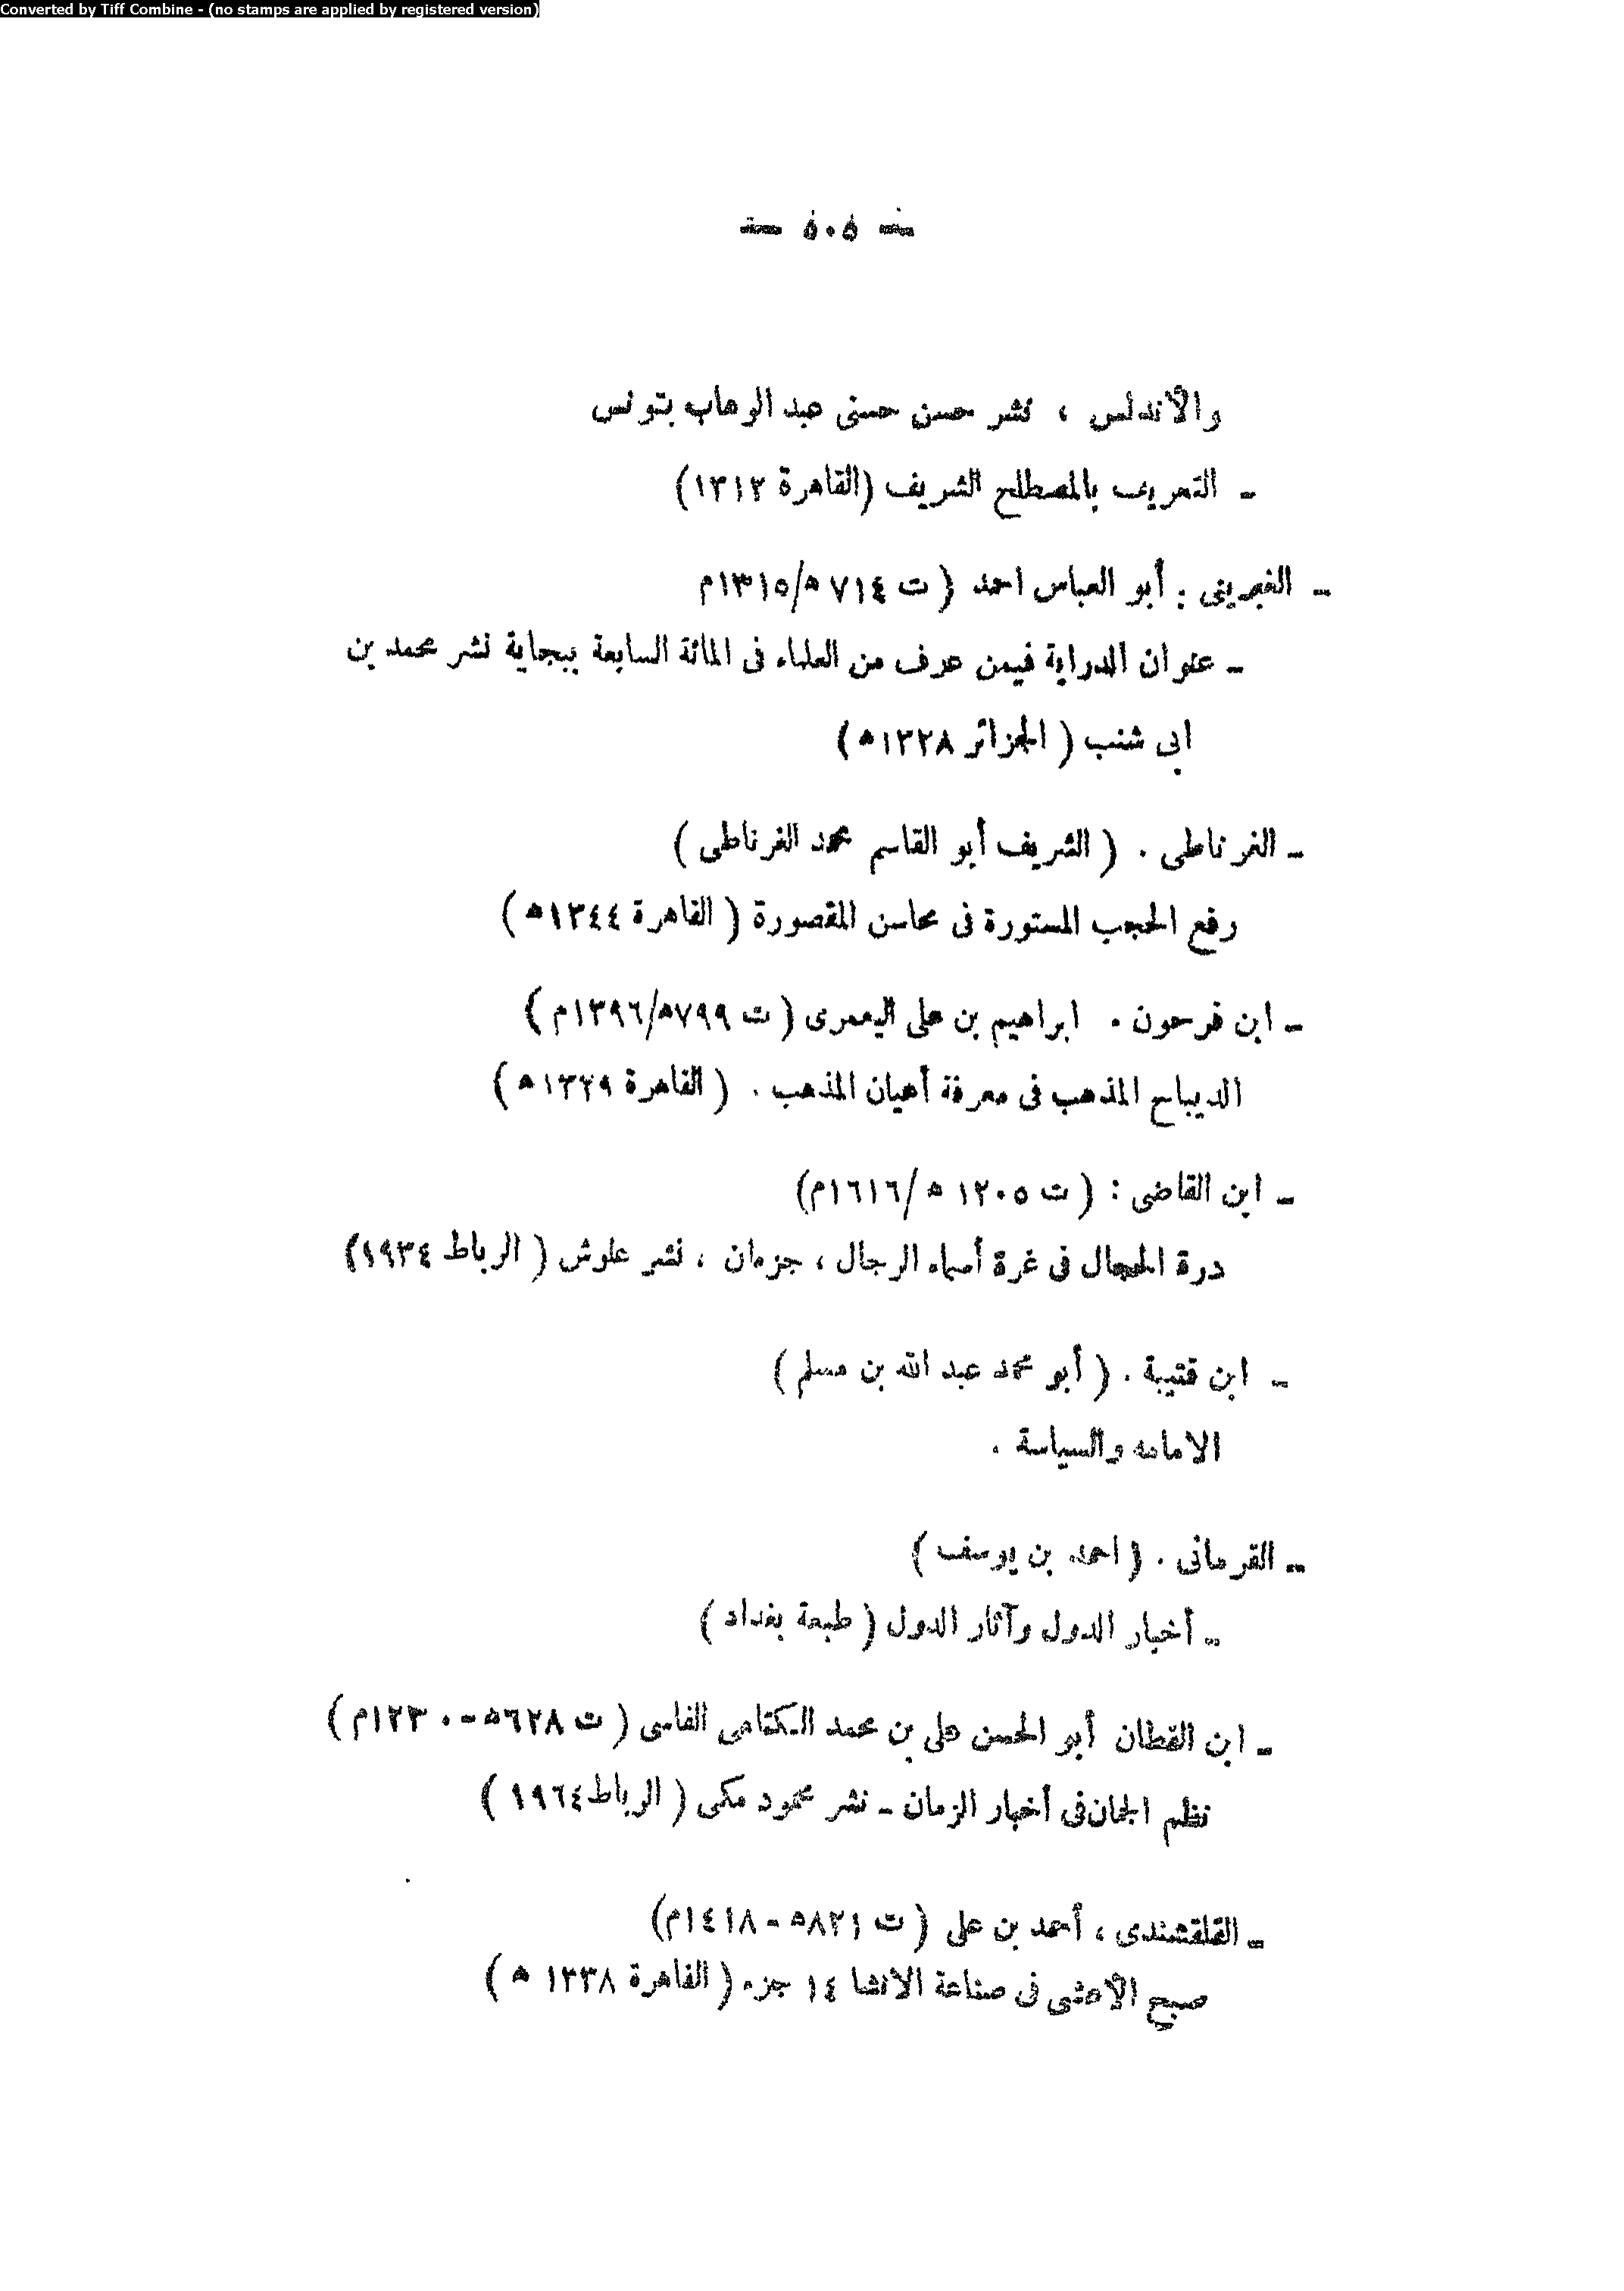 Converted by Tiff Combine - (no stamps are applied by registered version)
— ٥٠٥ —
والأندلس ، نشر حسن حسنى عبد الوهاب بتونس
- التعريف بالمصطلح الشريف (القاهرة ١٣١٢)
- الغبرينى : أبو العباس احمد ( ت ٧١٤ ه/١٣١٥م
- عنوان الدراية فيمن عرف من العلماء فى المائة السابعة ببجاية نشر محمد بن
ابى شنب ( الجزائر ١٣٢٨ه )
- الغرناطى . ( الشريف أبو القاسم محمد الغرناطى )
رفع الحجب المستورة فى محاسن المقصورة ( القاهرة ١٣٤٤ه )
- ابن فرحون . ابراهيم بن على اليعمرى ( ت ٧٩٩ه/١٣٩٦م )
الديباح المذهب فى معرفة أعيان المذهب . ( القاهرة ١٣٢٩ ه )
- ابن القاضى : ( ت ١٢٠٥ ه /١٦١٦م)
درة الحجال فى غرة أسماء الرجال ، جزءان ، نشر علوش ( الرباط ١٩٣٤)
- ابن قتيبة . ( أبو محمد عبد الله بن مسلم )
الامامه والسياسة .
- القرمانى . ( احمد بن يوسف )
- أخبار الدول وآثار الدول ( طبعة بغداد )
- ابن القطان أبو الحسن على بن محمد الكتامى الفاسى ( ت ٦٢٨ه - ١٢٣٠م )
نظم الجمان فى أخبار الزمان - نشر محمود مكى ( الرباط ١٩٦٤ )
- القلقشندى ، أحمد بن على ( ت ٨٢١ه - ١٤١٨م)
صبح الأعشى فى صناعة الانشا ١٤ جزء ( القاهرة ١٣٣٨ ه )